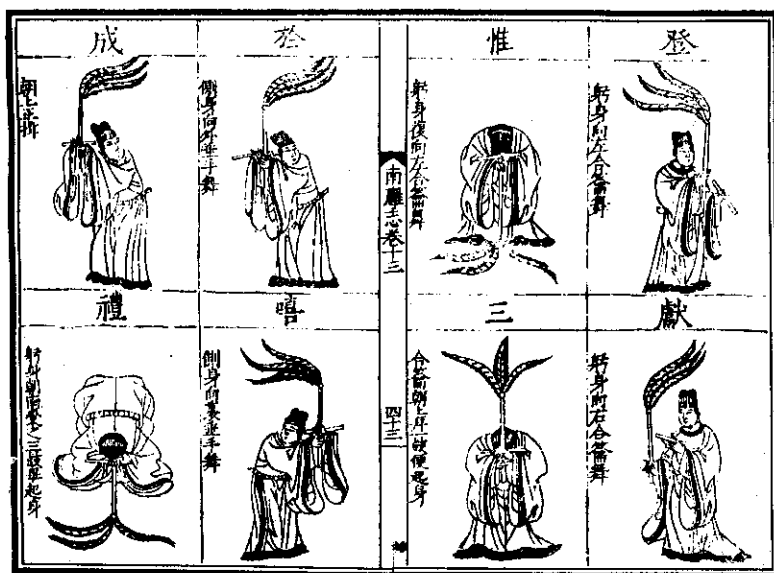 登
躬身向左合籥舞
獻
躬身向右合籥舞
惟
躬身復向左合籥舞
三
合籥朝上拜一鼓便起身
南雝志卷十三
四十三
於
側身向外垂手舞
嘻
側身向裏垂手舞
成
朝上正揖
禮
躬身朝而受之三鼓畢起身